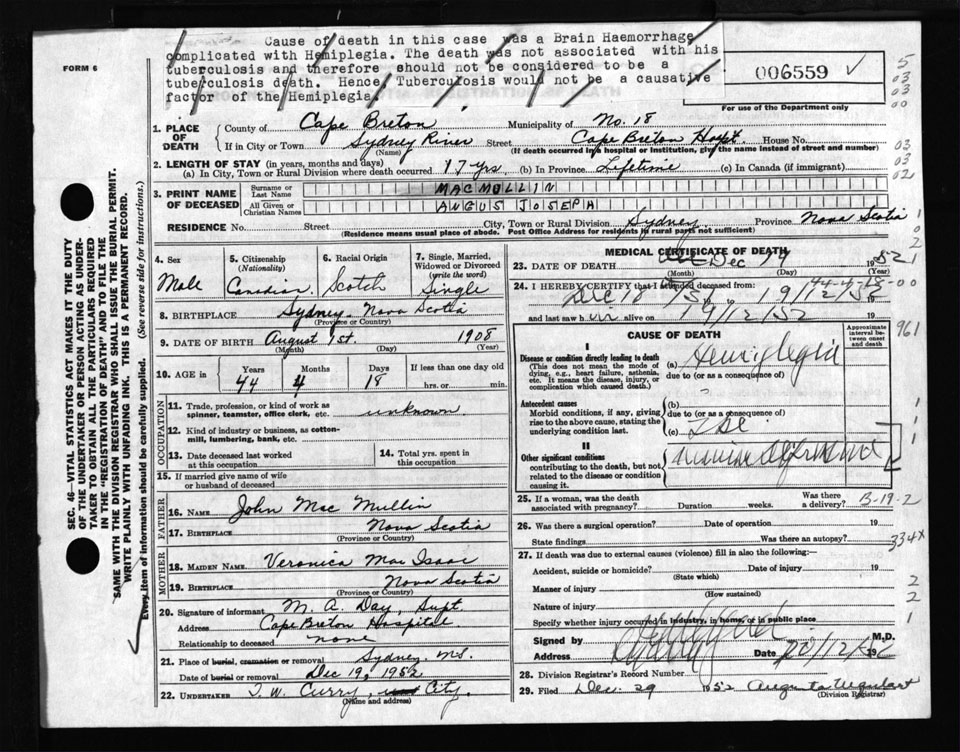 Cause of death in this case was a Brain Haemorrhage
complicated with Hemiplegia. The death was not associated with his
tuberculosis and therefore should not be considered to be a
tuberculosis death. Hence Tuberculosis would not be a causative
factor of the Hemiplegia
FORM 6
006559
For use of the Department only
5
03
03
00
03
02
1. PLACE OF DEATH
County of Cape Breton Municipality of No. 18
If in City or Town Sydney River Street Cape Breton Hospt. House No.
(Name) (If death occurred in a hospital or institution, give the name instead of street and number)
2. LENGTH OF STAY (in years, months and days)
(a) In City, Town or Rural Division where death occurred 17 yrs. (b) In Province Lifetime (c) In Canada (if immigrant)
3. PRINT NAME OF DECEASED
Surname or Last Name MACMULLIN
All Given or Christian Names ANGUS JOSEPH
RESIDENCE No. Street City, Town or Rural Division Sydney Province Nova Scotia
(Residence means usual place of abode. Post Office Address for residents of rural parts not sufficient)
SEC. 46-VITAL STATISTICS ACT MAKES IT THE DUTY
OF THE UNDERTAKER OR PERSON ACTING AS UNDER-
TAKER TO OBTAIN ALL THE PARTICULARS REQUIRED
IN THE "REGISTRATION OF DEATH" AND TO FILE THE
SAME WITH THE DIVISION REGISTRAR WHO SHALL ISSUE THE BURIAL PERMIT.
WRITE PLAINLY WITH UNFADING INK. THIS IS A PERMANENT RECORD.
Every item of information should be carefully supplied. (See reverse side for instructions.)
4. Sex
Male
5. Citizenship
(Nationality)
Canadian
6. Racial Origin
Scotch
7. Single, Married, Widowed or Divorced
(write the word)
Single
8. BIRTHPLACE Sydney Nova Scotia
(Province or Country)
9. DATE OF BIRTH August 1st. 1908
(Month) (Day) (Year)
10. AGE in
Years Months Days If less than one day old
44 4 18 hrs. or min.
OCCUPATION
11. Trade, profession, or kind of work as
spinner, teamster, office clerk, etc. unknown.
12. Kind of industry or business, as cotton-
mill, lumbering, bank, etc.
13. Date deceased last worked
at this occupation
14. Total yrs. spent in
this occupation
15. If married give name of wife
or husband of deceased
FATHER
16. NAME John Mac Mullin
17. BIRTHPLACE Nova Scotia
(Province or Country)
MOTHER
18. MAIDEN NAME Veronica Mac Isaac
19. BIRTHPLACE Nova Scotia
(Province or Country)
20. Signature of informant M. A. Day, Supt.
Address Cape Breton Hospital
Relationship to deceased none
21. Place of burial, cremation or removal Sydney, N.S.
Date of burial or removal Dec 19, 1952
22. UNDERTAKER T. W. Curry, City.
(Name and address)
MEDICAL CERTIFICATE OF DEATH
23. DATE OF DEATH Dec 19 1952
(Month) (Day) (Year)
24. I HEREBY CERTIFY that I attended deceased from:
Dec 18 19/12/52
and last saw him alive on 19/12/52
CAUSE OF DEATH
Approximate interval between onset and death
I
Disease or condition directly leading to death
(This does not mean the mode of
dying, e.g., heart failure, asthenia,
etc. It means the disease, injury, or
complication which caused death.)
(a) Hemiplegia
due to (or as a consequence of)
Antecedent causes
Morbid conditions, if any, giving
rise to the above cause, stating the
underlying condition last.
(b)
due to (or as a consequence of)
(c)
II
Other significant conditions
contributing to the death, but not
related to the disease or condition
causing it.
25. If a woman, was the death
associated with pregnancy? Duration weeks. Was there a delivery?
26. Was there a surgical operation? Date of operation 19
State findings Was there an autopsy?
27. If death was due to external causes (violence) fill in also the following:-
Accident, suicide or homicide? Date of injury 19
(State which)
Manner of injury
(How sustained)
Nature of injury
Specify whether injury occurred in industry, in home, or in public place
Signed by M.D.
Address Date 20/12/52
28. Division Registrar's Record Number
29. Filed Dec. 29 1952 Augusta Urquhart
(Division Registrar)
1
0
2
1
961
1
1
B-19-2
334X
2
2
1